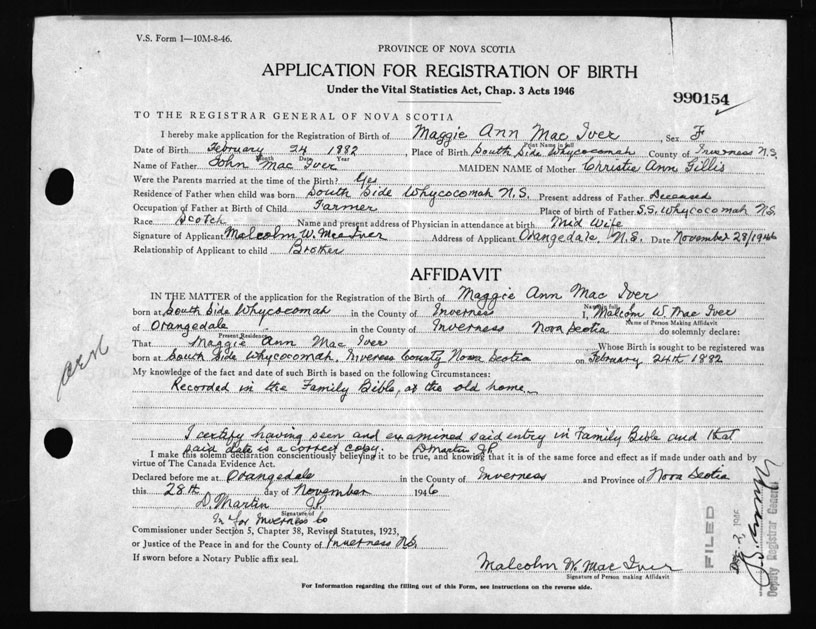 V.S. Form 1—10M-8-46.
PROVINCE OF NOVA SCOTIA
APPLICATION FOR REGISTRATION OF BIRTH
Under the Vital Statistics Act, Chap. 3 Acts 1946
990154
TO THE REGISTRAR GENERAL OF NOVA SCOTIA
I hereby make application for the Registration of Birth of Maggie Ann Mac Iver Sex F
Print Name in full
Date of Birth February 24 1882 Place of Birth South Side Whycocomah County of Inverness N.S.
Month Date Year
Name of Father John Mac Iver MAIDEN NAME of Mother Christie Ann Gillis
Were the Parents married at the time of the Birth? Yes
Residence of Father when child was born South Side Whycocomah N.S. Present address of Father Deceased
Occupation of Father at Birth of Child Farmer Place of birth of Father S.S. Whycocomah N.S.
Race Scotch Name and present address of Physician in attendance at birth Mid Wife
Signature of Applicant Malcolm W. Mac Iver Address of Applicant Orangedale, N.S. Date November 28/1946
Relationship of Applicant to child Brother
AFFIDAVIT
IN THE MATTER of the application for the Registration of the Birth of Maggie Ann Mac Iver
Name in full
born at South Side Whycocomah in the County of Inverness I, Malcom W. Mac Iver
Name of Person Making Affidavit
of Orangedale in the County of Inverness Nova Scotia do solemnly declare:
Present Residence
That Maggie Ann Mac Iver Whose Birth is sought to be registered was
born at South Side Whycocomah, Inverness County Nova Scotia on February 24th 1882
My knowledge of the fact and date of such Birth is based on the following Circumstances:
Recorded in the Family Bible, at the old home
I certify having seen and examined said entry in Family Bible and that
said date is a correct copy. D Martin J.P.
I make this solemn declaration conscientiously believing it to be true, and knowing that it is of the same force and effect as if made under oath and by
virtue of The Canada Evidence Act.
Declared before me at Orangedale in the County of Inverness and Province of Nova Scotia
this 28th day of November 1946
D. Martin J.P.
Signature of
In & for Inverness Co
Commissioner under Section 5, Chapter 38, Revised Statutes, 1923,
or Justice of the Peace in and for the County of Inverness N.S.
If sworn before a Notary Public affix seal.
Malcolm W. Mac Iver
Signature of Person making Affidavit
For Information regarding the filling out of this Form, see instructions on the reverse side.
FILED
Deputy Registrar General